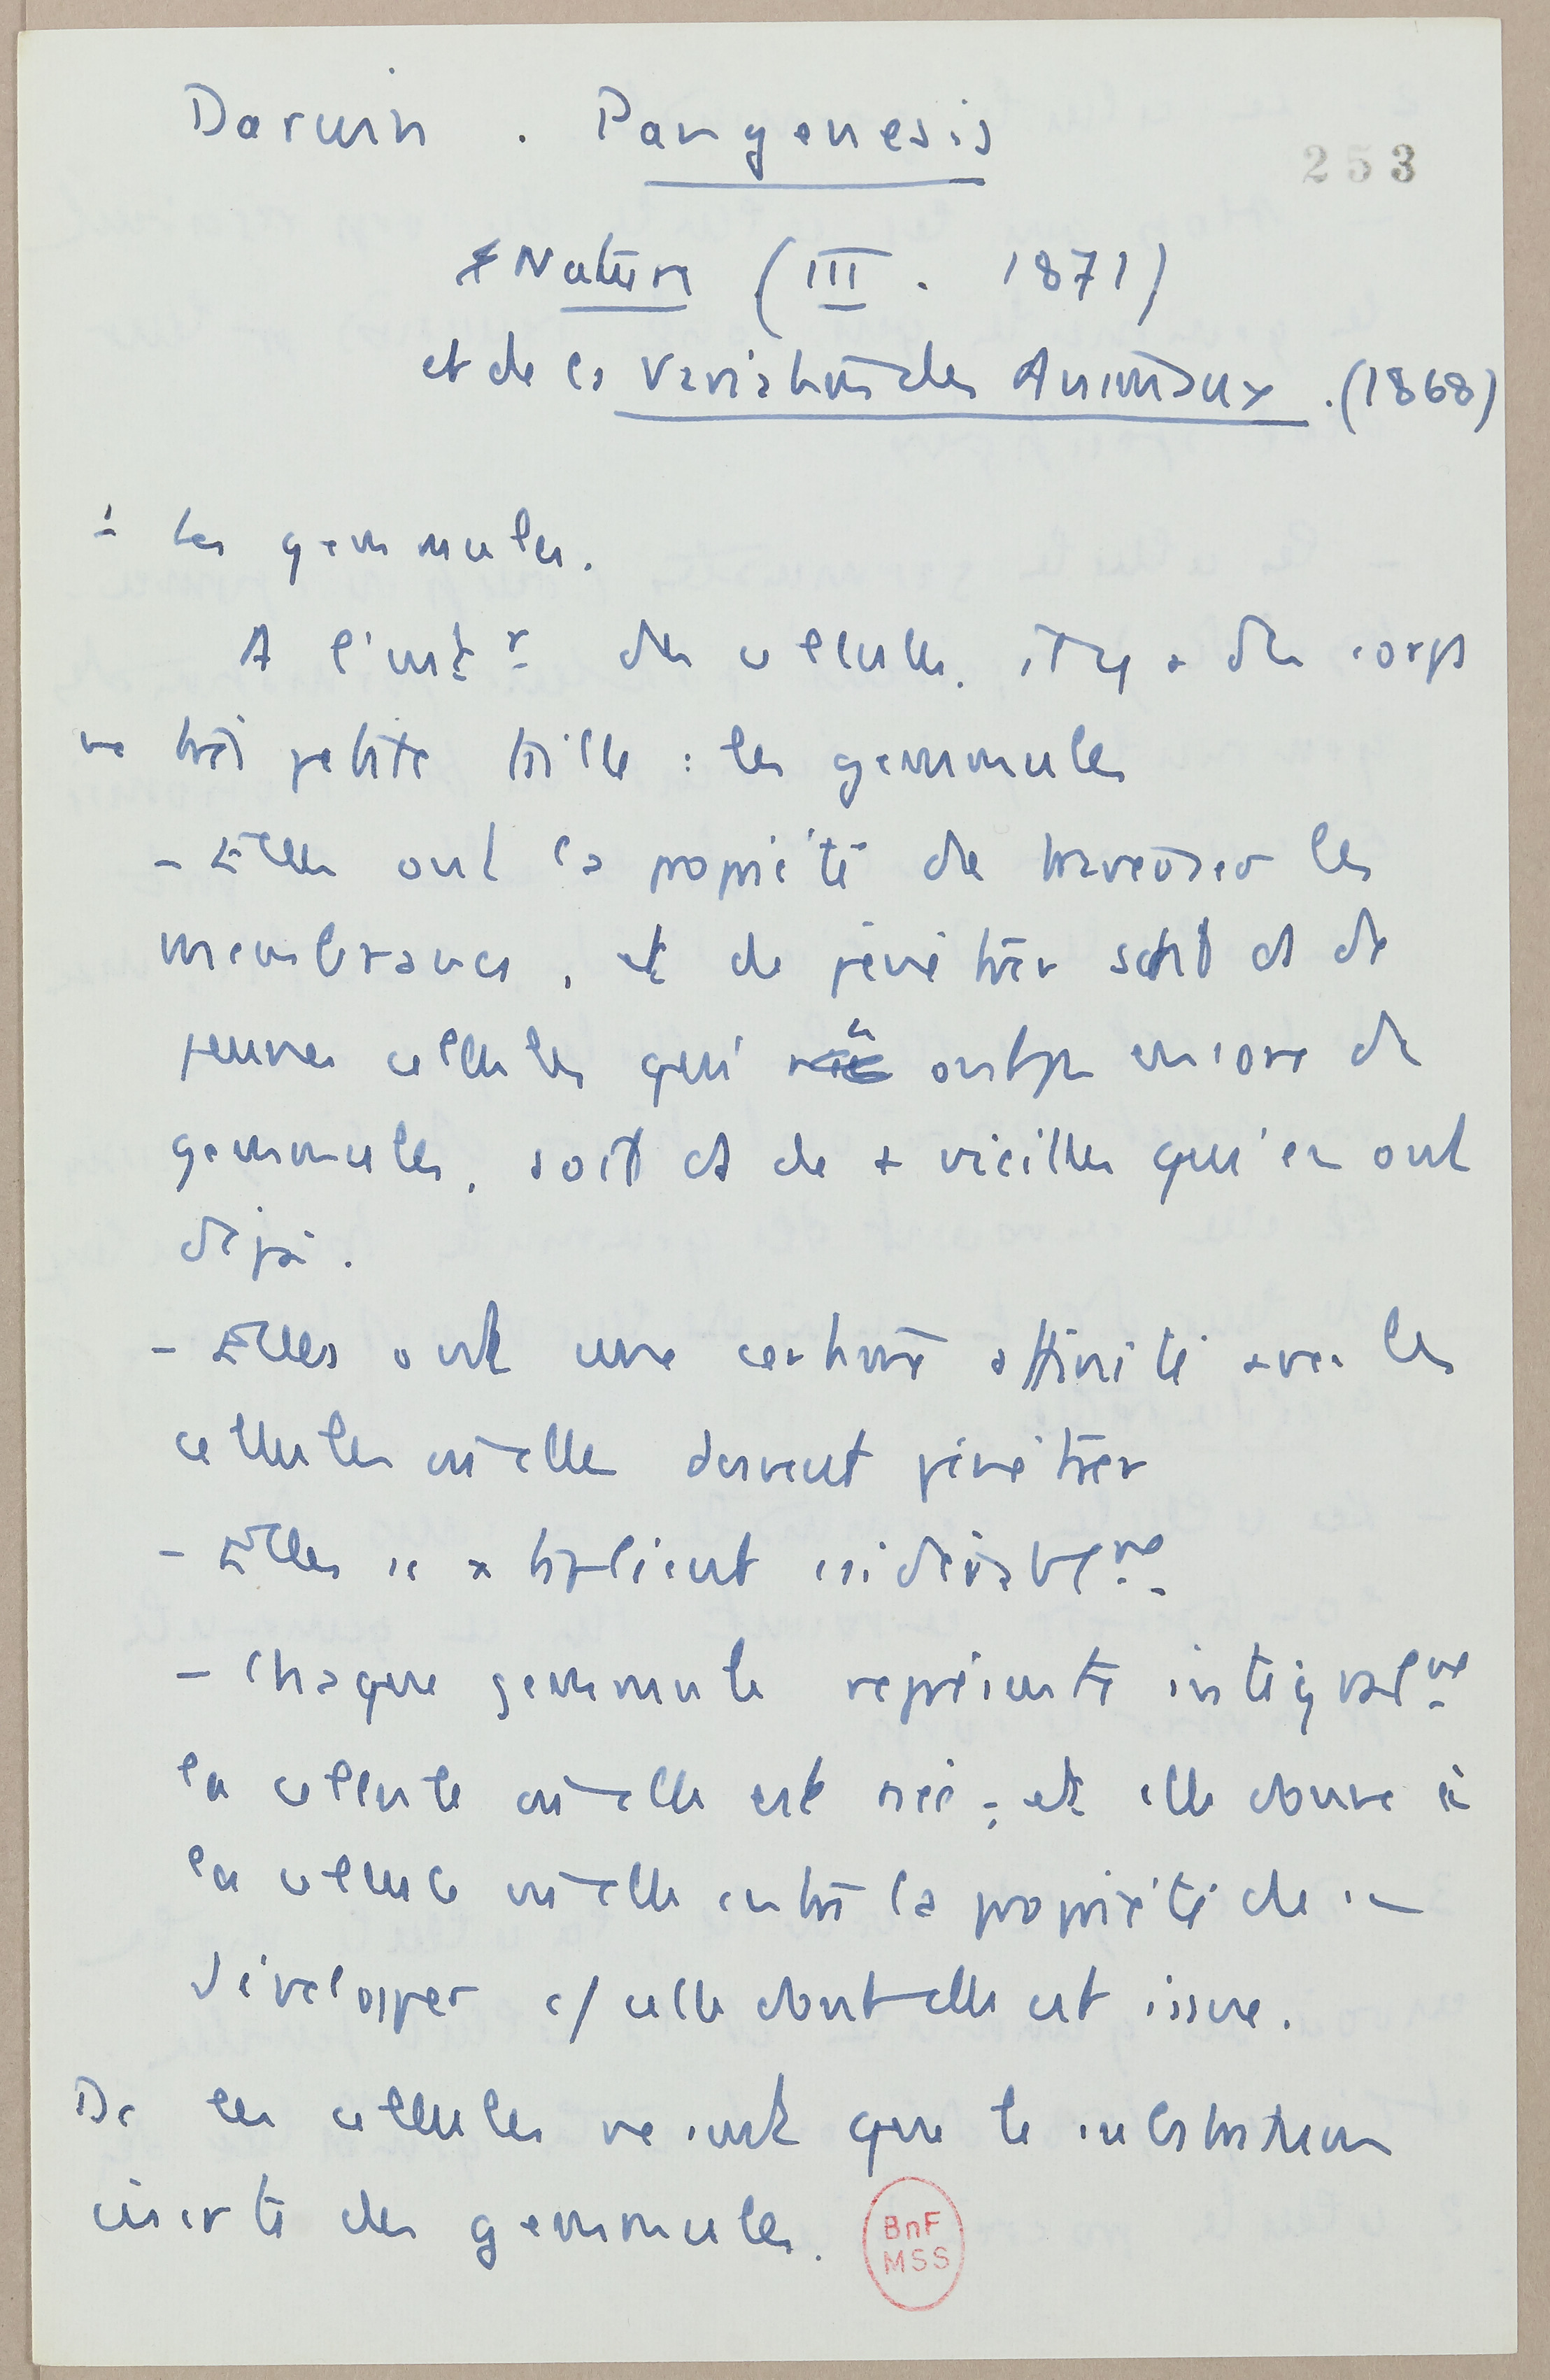 Darwin. Pangenesis
253
Nature (III. 1871)
et de la Variation des Animaux. (1868)
1 les gemmules.
A l'intr des cellules, il y a des corps
de très petite taille : les gemmules
- Elles ont la propriété de traverser les
membranes, et de pénétrer soit ds de
jeunes cellules qui n' ont pas encore de
gemmules, soit ds de + vieilles qui en ont
déjà.
- Elles ont une certaine affinité avec les
cellules où elles doivent pénétrer
- Elles se x tiplient
- Chaque gemmule représente intégralmt
la cellule où elle est née ; et elle donne à
la cellule où elle entre la propriété de se
développer c/ celle dont elle est issue.
Dc les cellules ne sont que le substratum
inerte des gemmules.
BnF
MSS